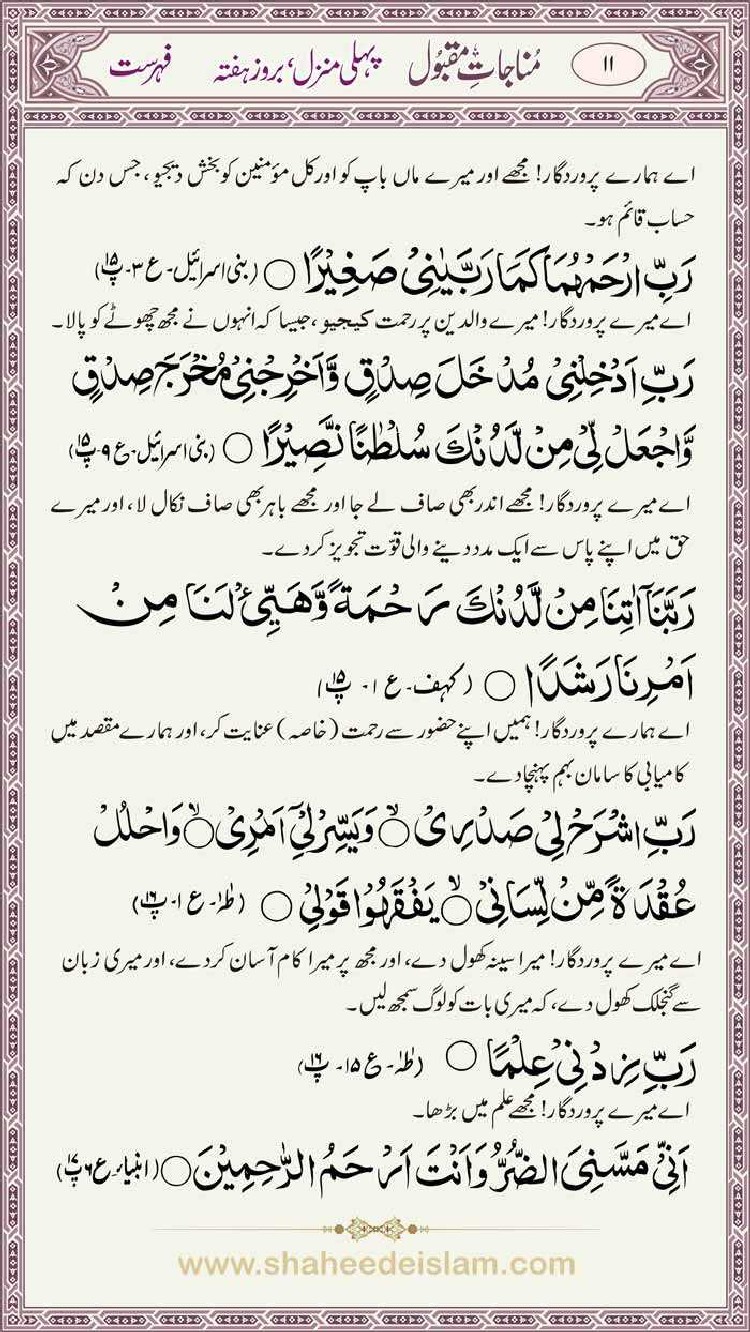 ۱۱ مُناجاتِ مقبُول پہلی منزل، بروز ہفتہ فہرست
اے ہمارے پروردگار! مجھے اور میرے ماں باپ کو اور کل مؤمنین کو بخش دیجیو، جس دن کہ
حساب قائم ہو۔
رَبِّ ارْحَمْهُمَا كَمَا رَبَّيٰنِيْ صَغِيْرًا ○ (بنی اسرائیل۔ ع ۳۔ پ۱۵)
اے میرے پروردگار! میرے والدین پر رحمت کیجیو، جیسا کہ انہوں نے مجھ چھوٹے کو پالا۔
رَبِّ اَدْخِلْنِيْ مُدْخَلَ صِدْقٍ وَّاَخْرِجْنِيْ مُخْرَجَ صِدْقٍ
وَّاجْعَلْ لِّيْ مِنْ لَّدُنْكَ سُلْطٰنًا نَّصِيْرًا ○ (بنی اسرائیل۔ ع ۹ پ۱۵)
اے میرے پروردگار! مجھے اندر بھی صاف لے جا اور مجھے باہر بھی صاف نکال لا، اور میرے
حق میں اپنے پاس سے ایک مدد دینے والی قوّت تجویز کر دے۔
رَبَّنَآ اٰتِنَا مِنْ لَّدُنْكَ رَحْمَةً وَّهَيِّئْ لَنَا مِنْ
اَمْرِنَا رَشَدًا ○ (کہف۔ ع ۱۔ پ۱۵)
اے ہمارے پروردگار! ہمیں اپنے حضور سے رحمت (خاصہ) عنایت کر، اور ہمارے مقصد میں
کامیابی کا سامان بہم پہنچا دے۔
رَبِّ اشْرَحْ لِيْ صَدْرِيْ ○ۙ وَيَسِّرْ لِيْٓ اَمْرِيْ ○ۙ وَاحْلُلْ
عُقْدَةً مِّنْ لِّسَانِيْ ○ۙ يَفْقَهُوْا قَوْلِيْ ○ (طٰهٰ۔ ع ۱۔ پ۱۶)
اے میرے پروردگار! میرا سینہ کھول دے، اور مجھ پر میرا کام آسان کر دے، اور میری زبان
سے گنجلک کھول دے، کہ میری بات کو لوگ سمجھ لیں۔
رَبِّ زِدْنِيْ عِلْمًا ○ (طٰهٰ۔ ع ۱۵۔ پ۱۶)
اے میرے پروردگار! مجھے علم میں بڑھا۔
اَنِّيْ مَسَّنِيَ الضُّرُّ وَاَنْتَ اَرْحَمُ الرّٰحِمِيْنَ ○ (انبیاء۔ ع ۶ پ۱۷)
www.shaheedeislam.com